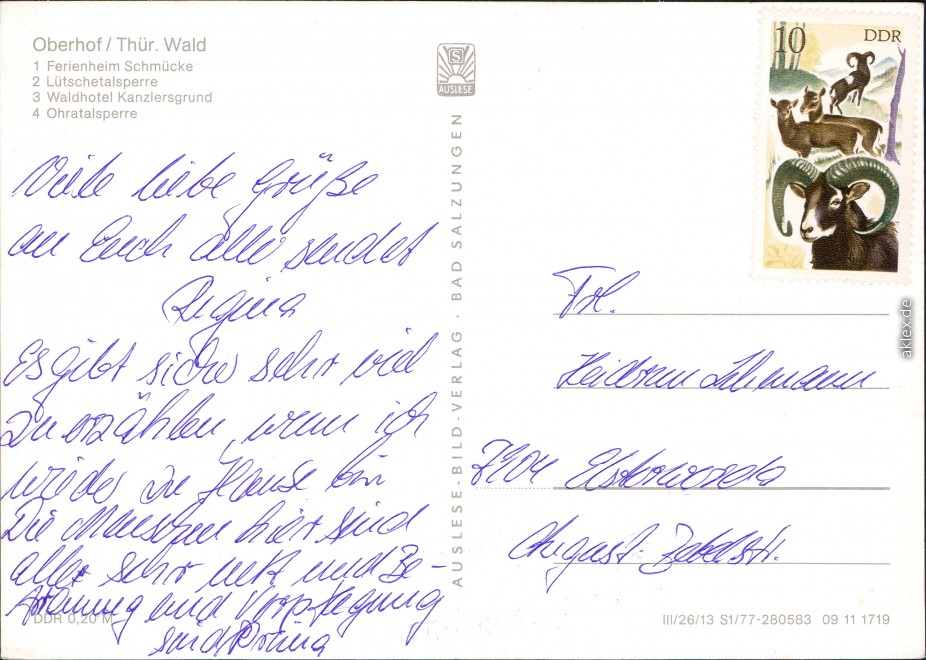 Oberhof / Thür. Wald
1 Ferienheim Schmücke
2 Lütschetalsperre
3 Waldhotel Kanzlersgrund
4 Ohratalsperre
Viele liebe Grüße
an Euch alle sendet
Regina
Es gibt sicher sehr viel
zu erzählen, wenn ich
wieder zu Hause bin
Die Menschen hier sind
alle sehr nett und Be-
treuung und Verpflegung
sind Prima
DDR 0,20 M
S
AUSLESE
AUSLESE-BILD-VERLAG · BAD SALZUNGEN
10 DDR
Frl.
Heidrun Lehmann
7904 Elsterwerda
August-Bebelstr.
III/26/13 S1/77-280583 09 11 1719
aklex.de